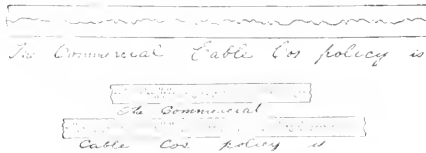 The Commercial Cable Cos policy is
The Commercial
Cable Cos policy is